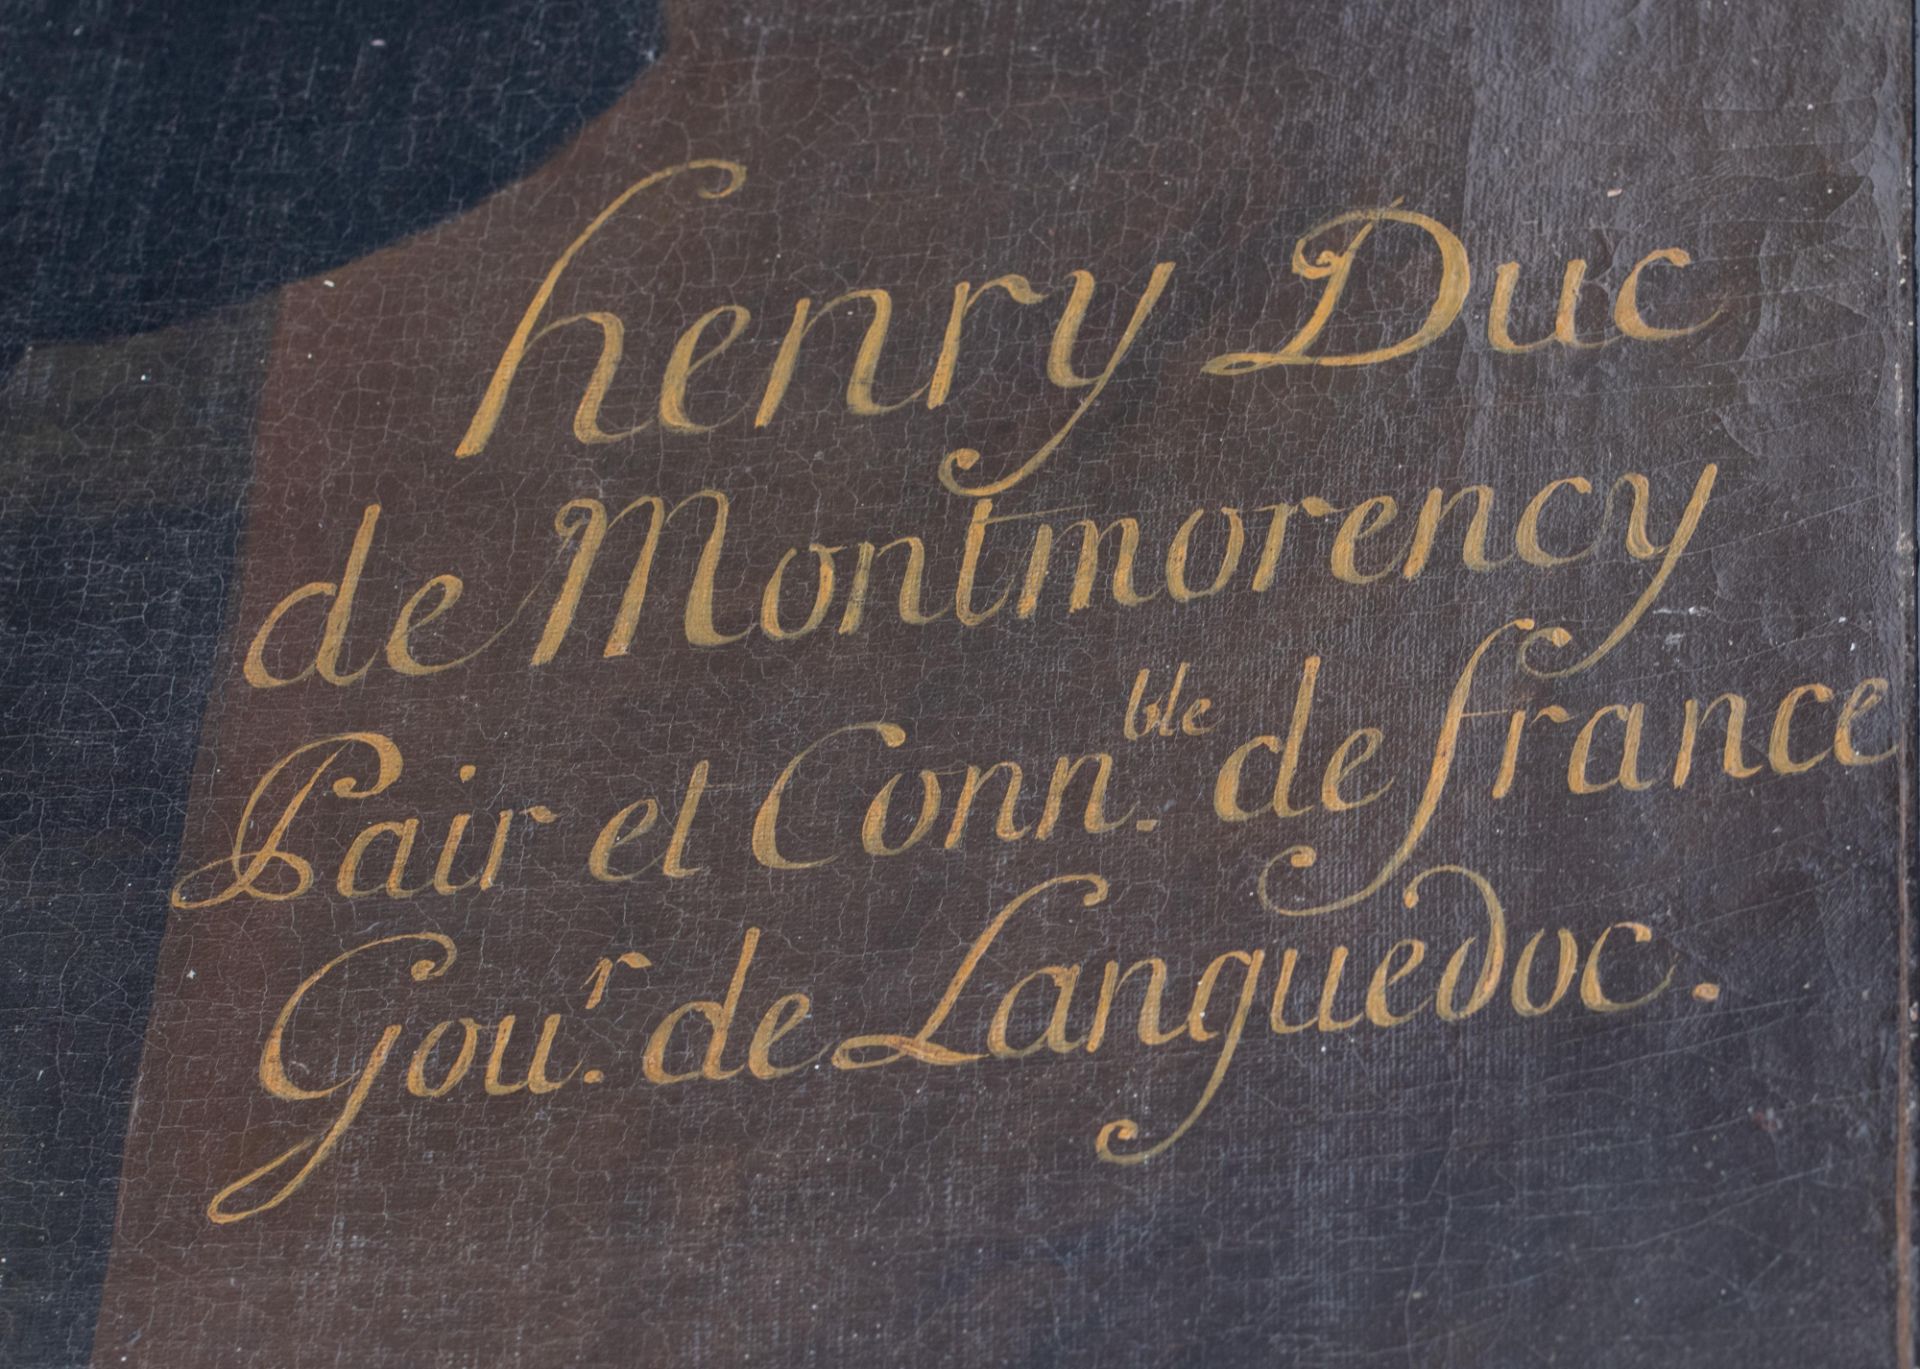 henry Duc
de Montmorency
Pair et Conn.ble de france
Gou.r de Languedoc.